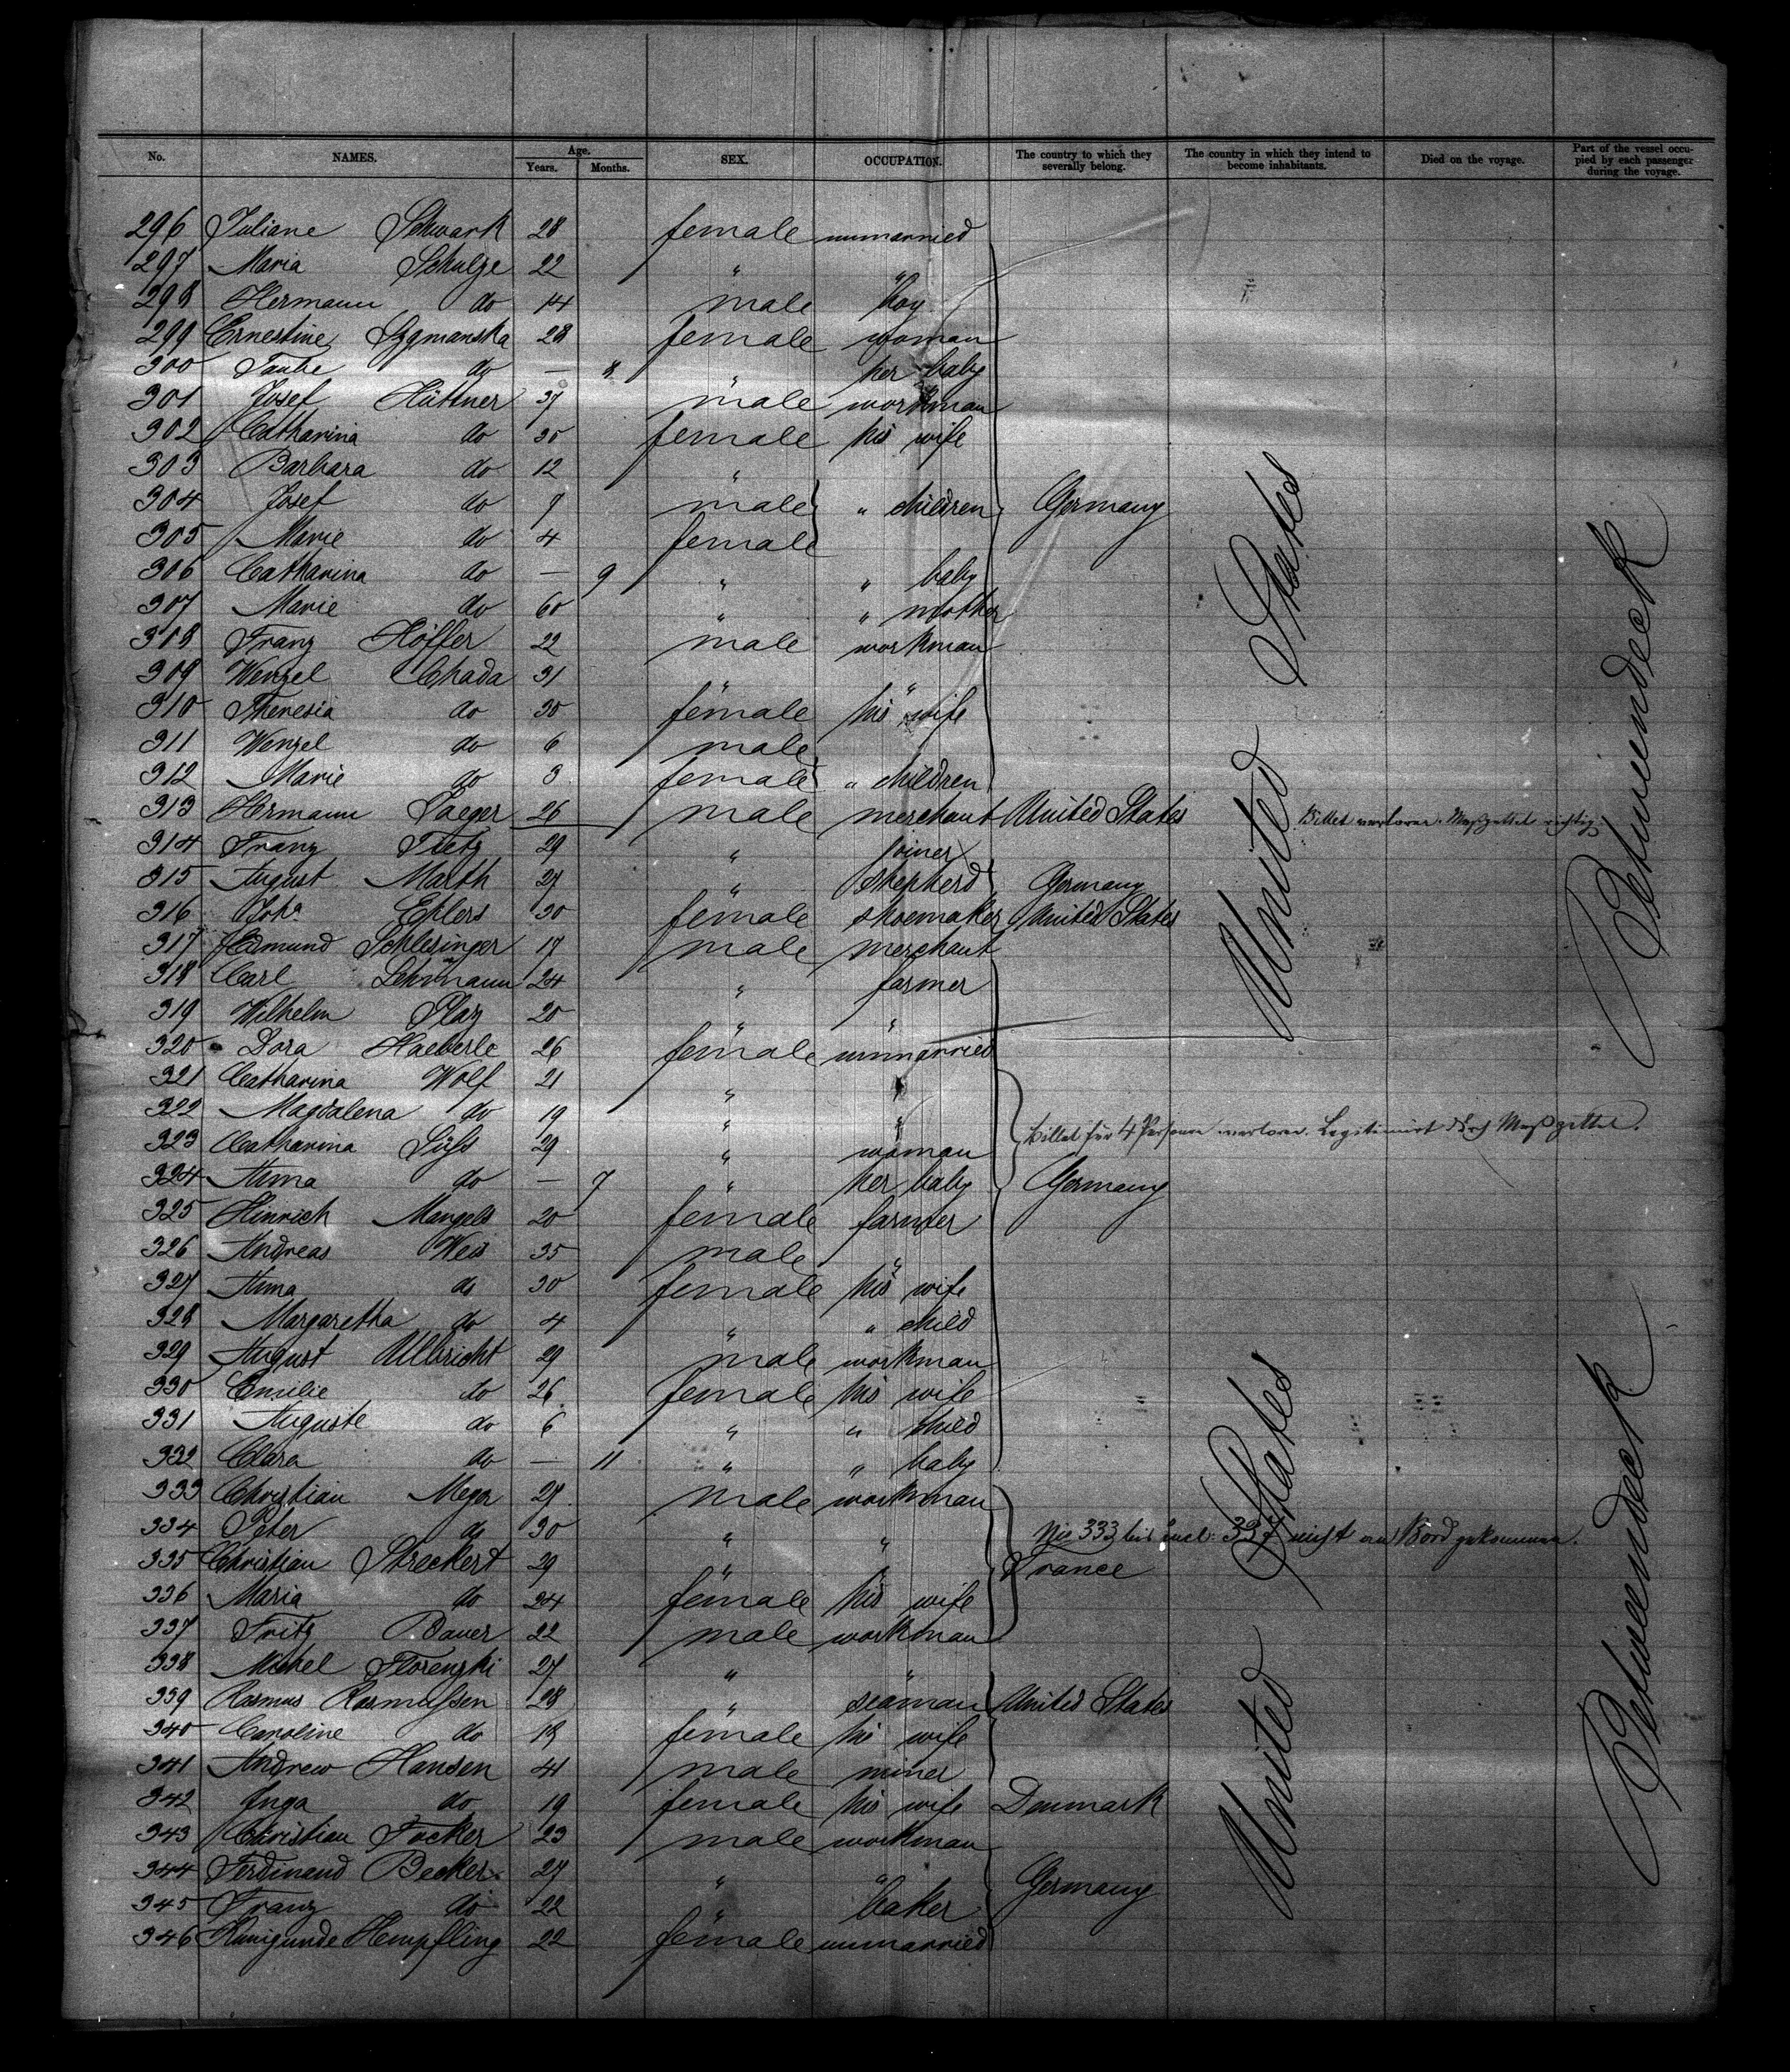 No. NAMES. Age. Years. Months. SEX. OCCUPATION. The country to which they severally belong. The country in which they intend to become inhabitants. Died on the voyage. Part of the vessel occupied by each passenger during the voyage.
296 Juliane Schwark 28 female unmarried
297 Maria Schulze 22 " "
298 Hermann do 14 male boy
299 Ernestine Szymanska 28 female woman
300 do — " her baby
301 Josef Hüttner 37 male workman
302 Catharina do 35 female his wife
303 Barbara do 12 "
304 Josef do 9 male " children Germany
305 Marie do 4 female
306 Catharina do — 9 " " baby
307 Marie do 60 " " mother
308 Franz Höffer 22 male workman
309 Wenzel Chada 31 " "
310 Theresia do 30 female his wife
311 Wenzel do 6 male
312 Marie do 3 female " children
313 Hermann Saeger 26 male merchant United States
314 Franz Tietz 29 " joiner
315 August Marth 27 " shepherd Germany
316 Joh. Ehlers 30 female shoemaker United States
317 Edmund Schlesinger 17 male merchant
318 Carl Lehrmann 24 " farmer
319 Wilhelm Plaz 20 " "
320 Dora Haeberle 26 female unmarried
321 Catharina Wolf 21 " "
322 Magdalena do 19 " "
323 Catharina Süß 29 " woman
324 Anna do — 7 " her baby Germany
325 Hinrich Mangels 20 female farmer
326 Andreas Weis 35 male "
327 Anna do 30 female his wife
328 Margaretha do 4 " " child
329 August Ulbricht 29 male workman
330 Emilie do 26 female his wife
331 Auguste do 6 " " child
332 Clara do — 11 " " baby
333 Christian Meyer 27 male workman
334 Peter do 30 " "
335 Christian Streckert 29 " " France
336 Maria do 24 female his wife
337 Fritz Bauer 22 male workman
338 Michel Florenzki 27 " "
339 Rasmus Rasmussen 28 " seaman United States
340 Caroline do 18 female his wife
341 Andrew Hansen 41 male miner
342 Inga do 19 female his wife Denmark
343 Christian Focker 23 male workman
344 Ferdinand Becker 27 " " Germany
345 Franz do 22 " baker
346 Kunigunde Hempfling 22 female unmarried
Billet verloren. Meßzettel richtig
Billet für 4 Personen verloren. Legitimirt durch Meßzettel.
No 333 bis incl. 337 nicht an Bord gekommen.
United States
United States
Betweendeck
Betweendeck